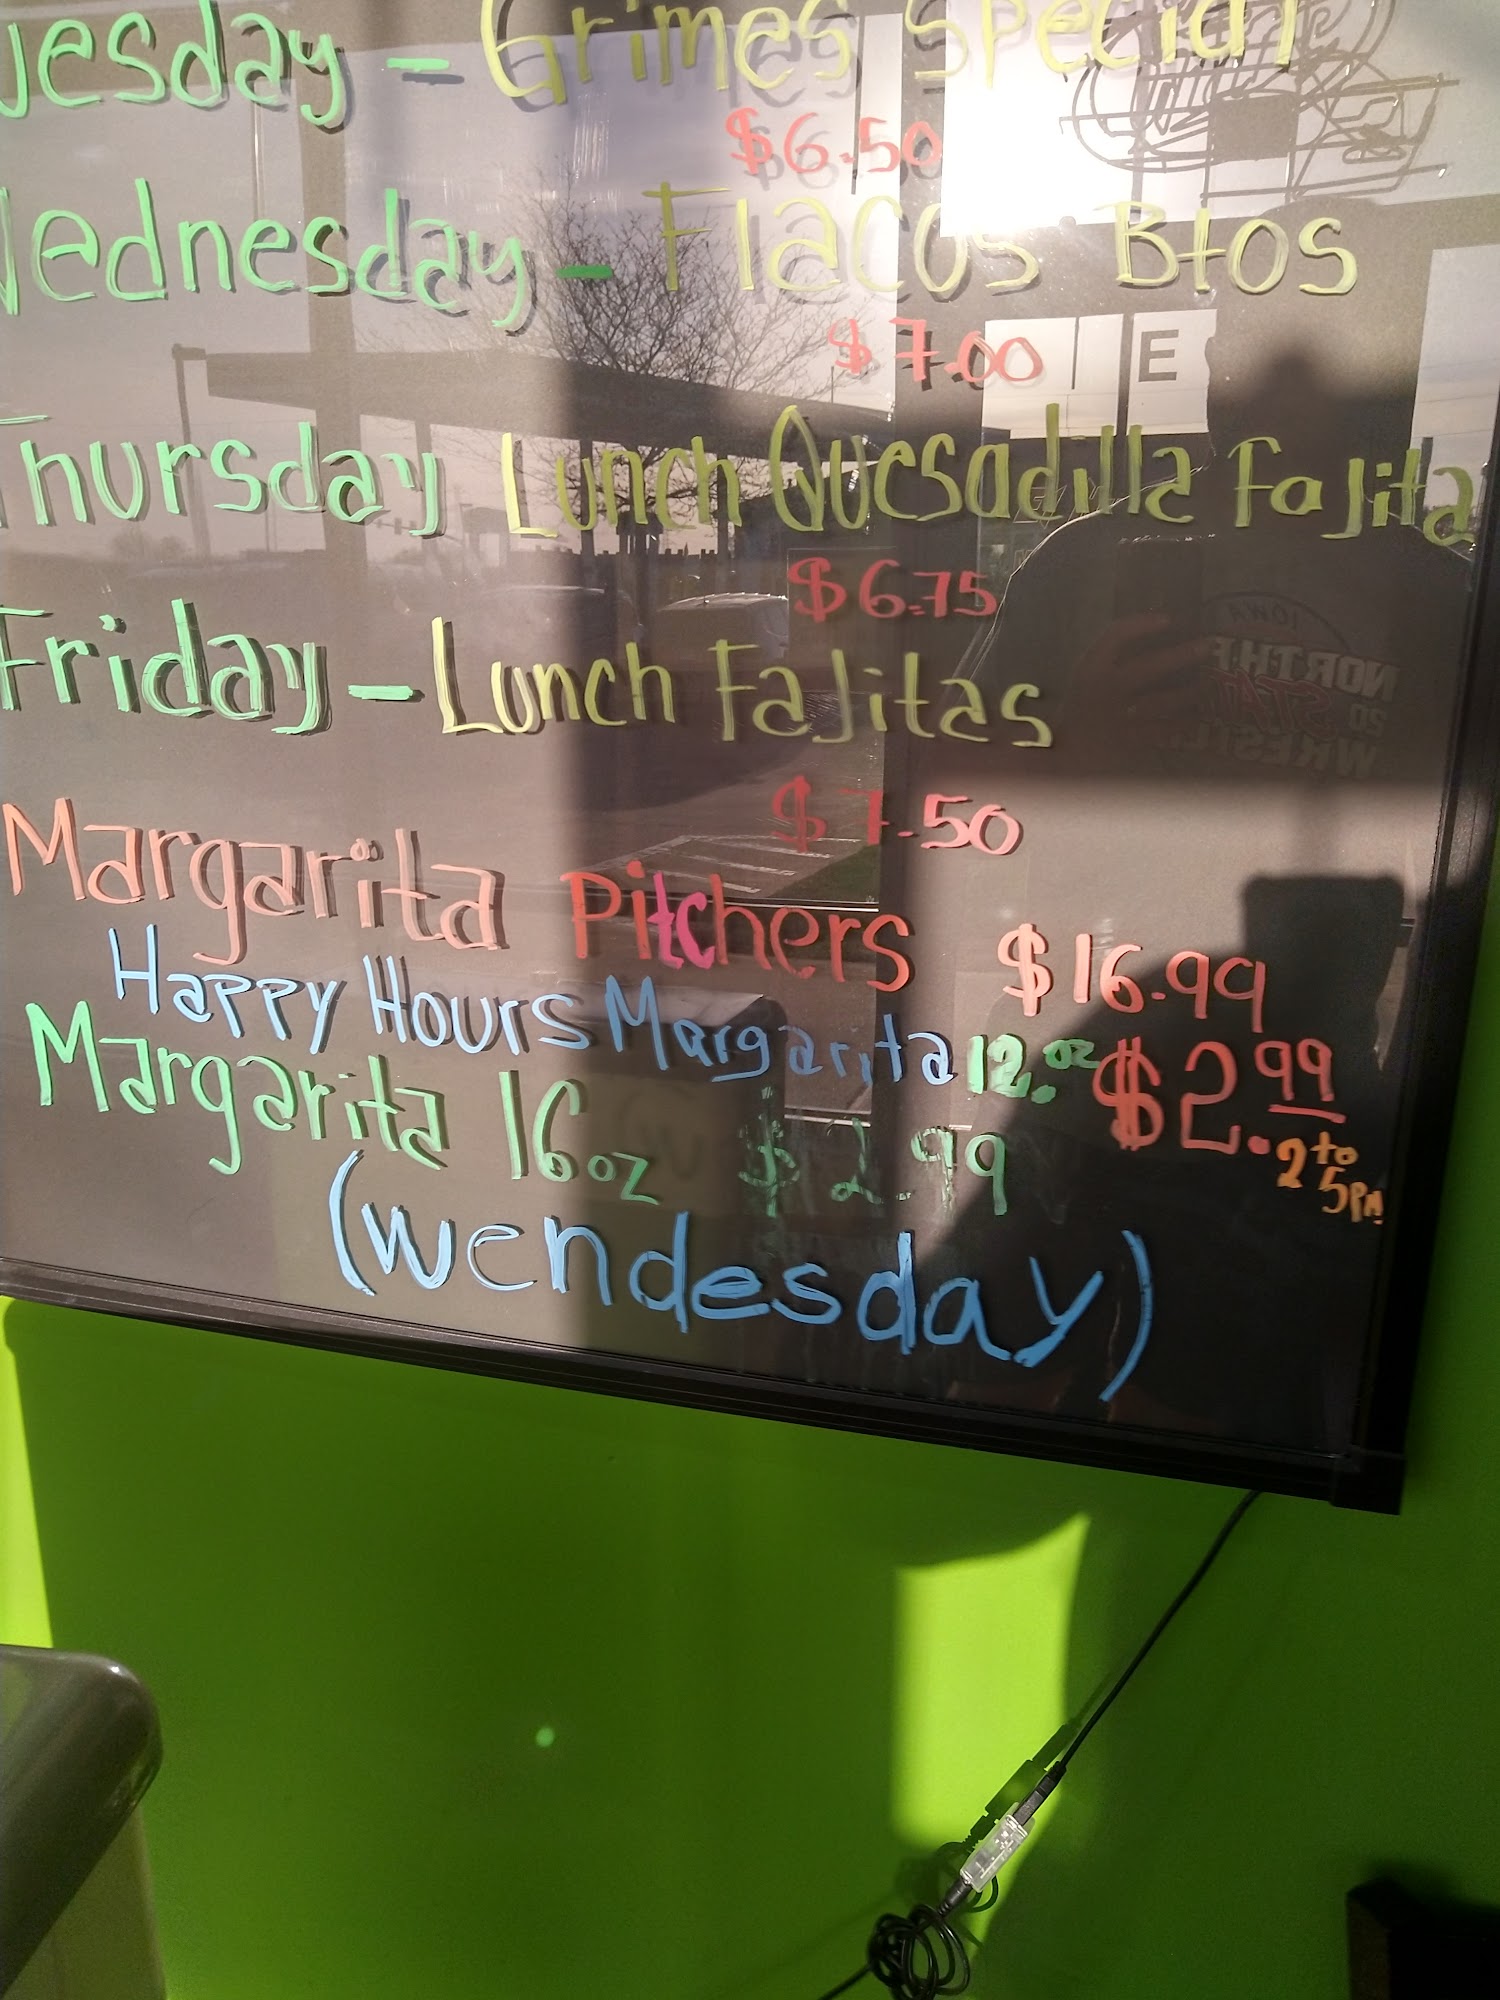 uesday - Grimes special
$6.50
Wednesday - Flacos Btos
$7.00
E
Thursday Lunch Quesadilla Fajita
$6.75
Friday - Lunch Fajitas
$7.50
Margarita Pitchers $16.99
Happy Hours Margarita 12.oz $2.99
2 to 5PM
Margarita 16oz $2.99
(wendesday)
IOWA
NORTH